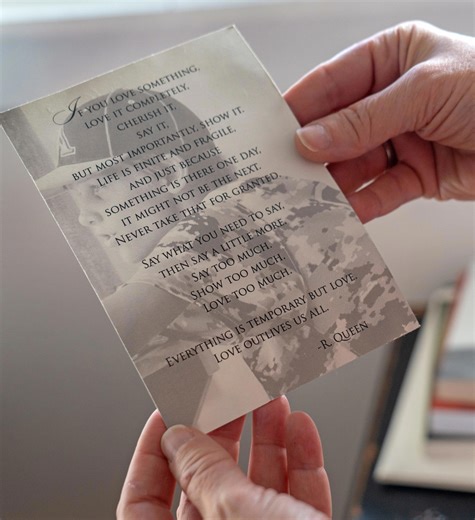 If you love something,
love it completely,
cherish it,
say it,
but most importantly, show it.
Life is finite and fragile,
and just because
something is there one day,
it might not be the next.
Never take that for granted.
Say what you need to say,
then say a little more.
Say too much.
Show too much.
Love too much.
Everything is temporary but love.
Love outlives us all.
-R. Queen